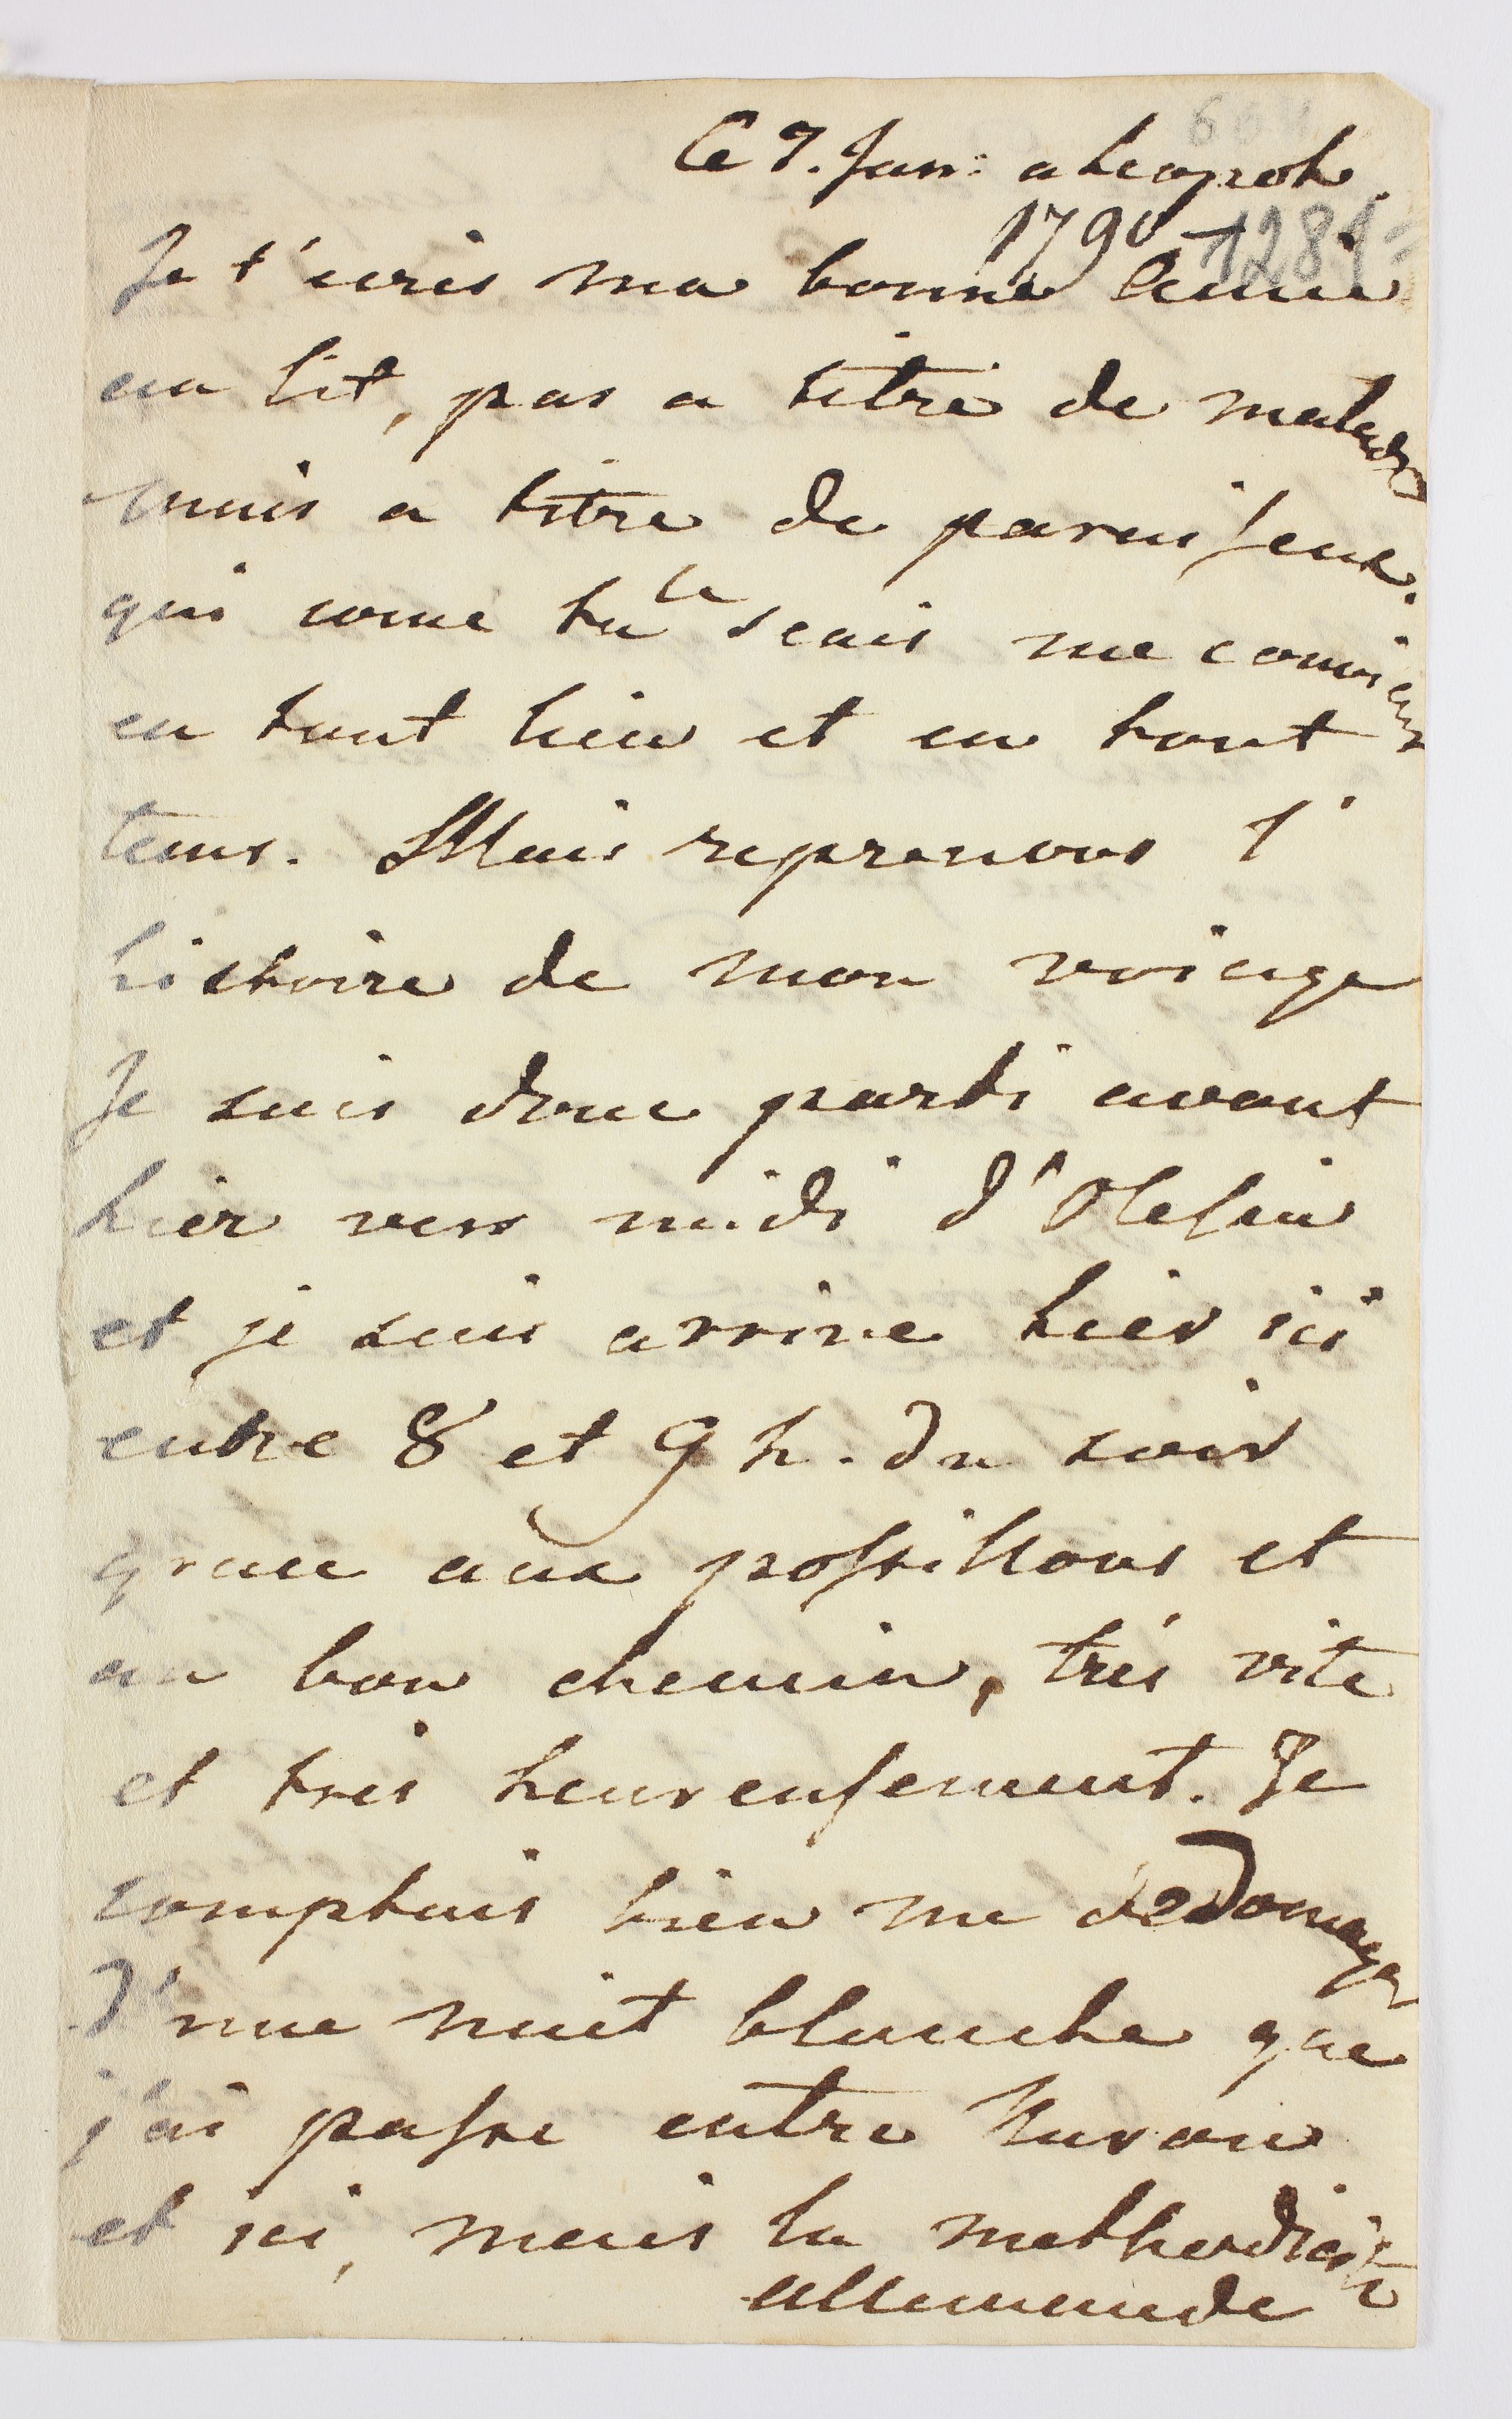 Ce 7. Jan: a Leopoh
664
1790 1281
Je t'ecris ma bonne amie
au lit, pas a titre de malade
mais a titre de paraiseux.
qui come tu le scais me convient
en tout lieu et en tout
tems. Mais reprenons l'
histoire de mon voiage
Je suis donc parti avant
hier vers midi d'Olesin
et je suis arrive hier ici
entre 8 et 9 h. du soir
grace aux postillons et
au bon chemin, très vite
et tres heureusement. Je
comptais bien me dedomager
d'une nuit blanche que
j'ai passe entre
et ici, mais la methodicite
allemande